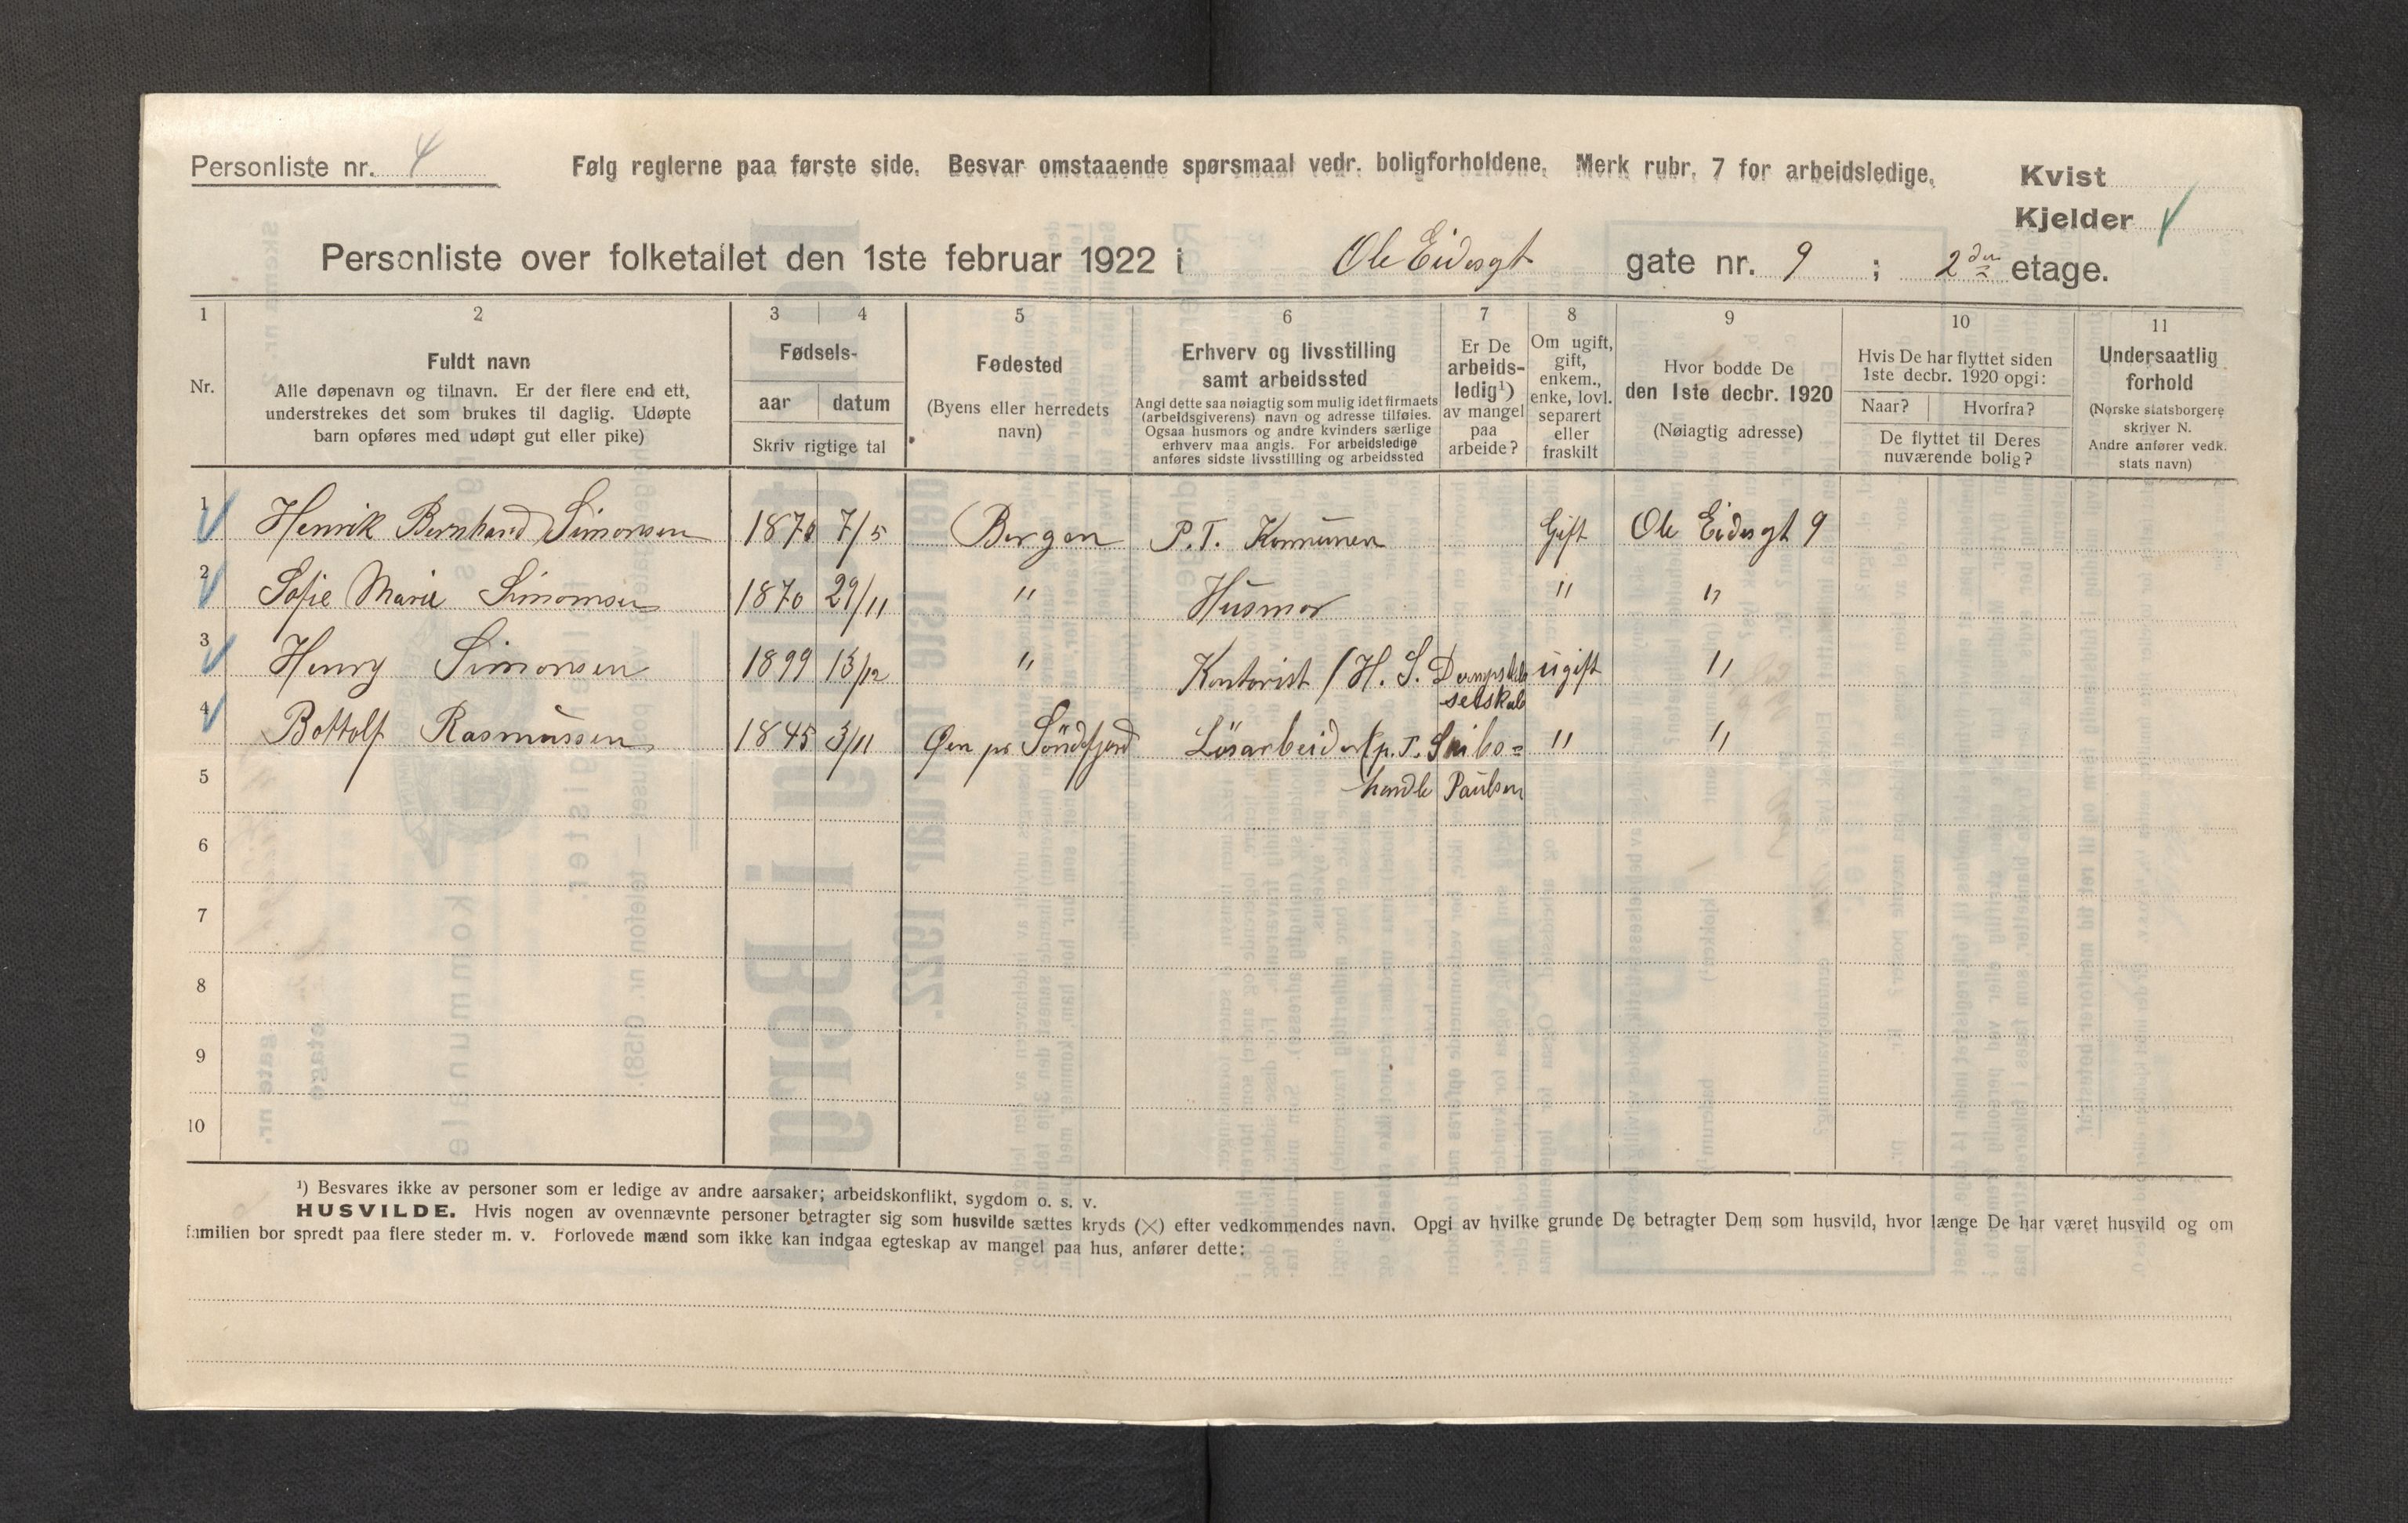 Personliste nr. 4
Følg reglerne paa første side. Besvar omstaaende spørsmaal vedr. boligforholdene. Merk rubr. 7 for arbeidsledige.
Kvist
Kjelder
Personliste over folketallet den 1ste februar 1922 i Ole Eidesgt gate nr. 9 ; 2den etage.
1 2 3 4 5 6 7 8 9 10 11
Nr.
Fuldt navn
Alle døpenavn og tilnavn. Er der flere end ett,
understrekes det som brukes til daglig. Udøpte
barn opføres med udøpt gut eller pike)
Fødsels-
aar datum
Skriv rigtige tal
Fødested
(Byens eller herredets
navn)
Erhverv og livsstilling
samt arbeidssted
Angi dette saa nøiagtig som mulig idet firmaets
(arbeidsgiverens) navn og adresse tilføies.
Ogsaa husmors og andre kvinders særlige
erhverv maa angis. For arbeidsledige
anføres sidste livsstilling og arbeidssted
Er De
arbeids-
ledig¹)
av mangel
paa
arbeide?
Om ugift,
gift,
enkem.,
enke, lovl.
separert
eller
fraskilt
Hvor bodde De
den 1ste decbr. 1920
(Nøiagtig adresse)
Hvis De har flyttet siden
1ste decbr. 1920 opgi:
Naar? Hvorfra?
De flyttet til Deres
nuværende bolig?
Undersaatlig
forhold
(Norske statsborgere
skriver N.
Andre anfører vedk.
stats navn)
1 Henrik Bernhard Simonsen 1870 7/5 Bergen P.T. Kommunen Gift Ole Eidesgt 9
2 Sofie Marie Simonsen 1870 29/11 " Husmor " "
3 Henry Simonsen 1899 13/12 " Kontorist / H. S. Dampskibs ugift "
selskab
4 Bottolf Rasmussen 1845 3/11 Øen pr Söndfjord Lösarbeider (p.T. " "
handle Paulsen
5
6
7
8
9
10
¹) Besvares ikke av personer som er ledige av andre aarsaker; arbeidskonflikt, sygdom o. s. v.
HUSVILDE. Hvis nogen av ovennævnte personer betragter sig som husvilde sættes kryds (×) efter vedkommendes navn. Opgi av hvilke grunde De betragter Dem som husvild, hvor længe De har været husvild og om
familien bor spredt paa flere steder m. v. Forlovede mænd som ikke kan indgaa egteskap av mangel paa hus, anfører dette: